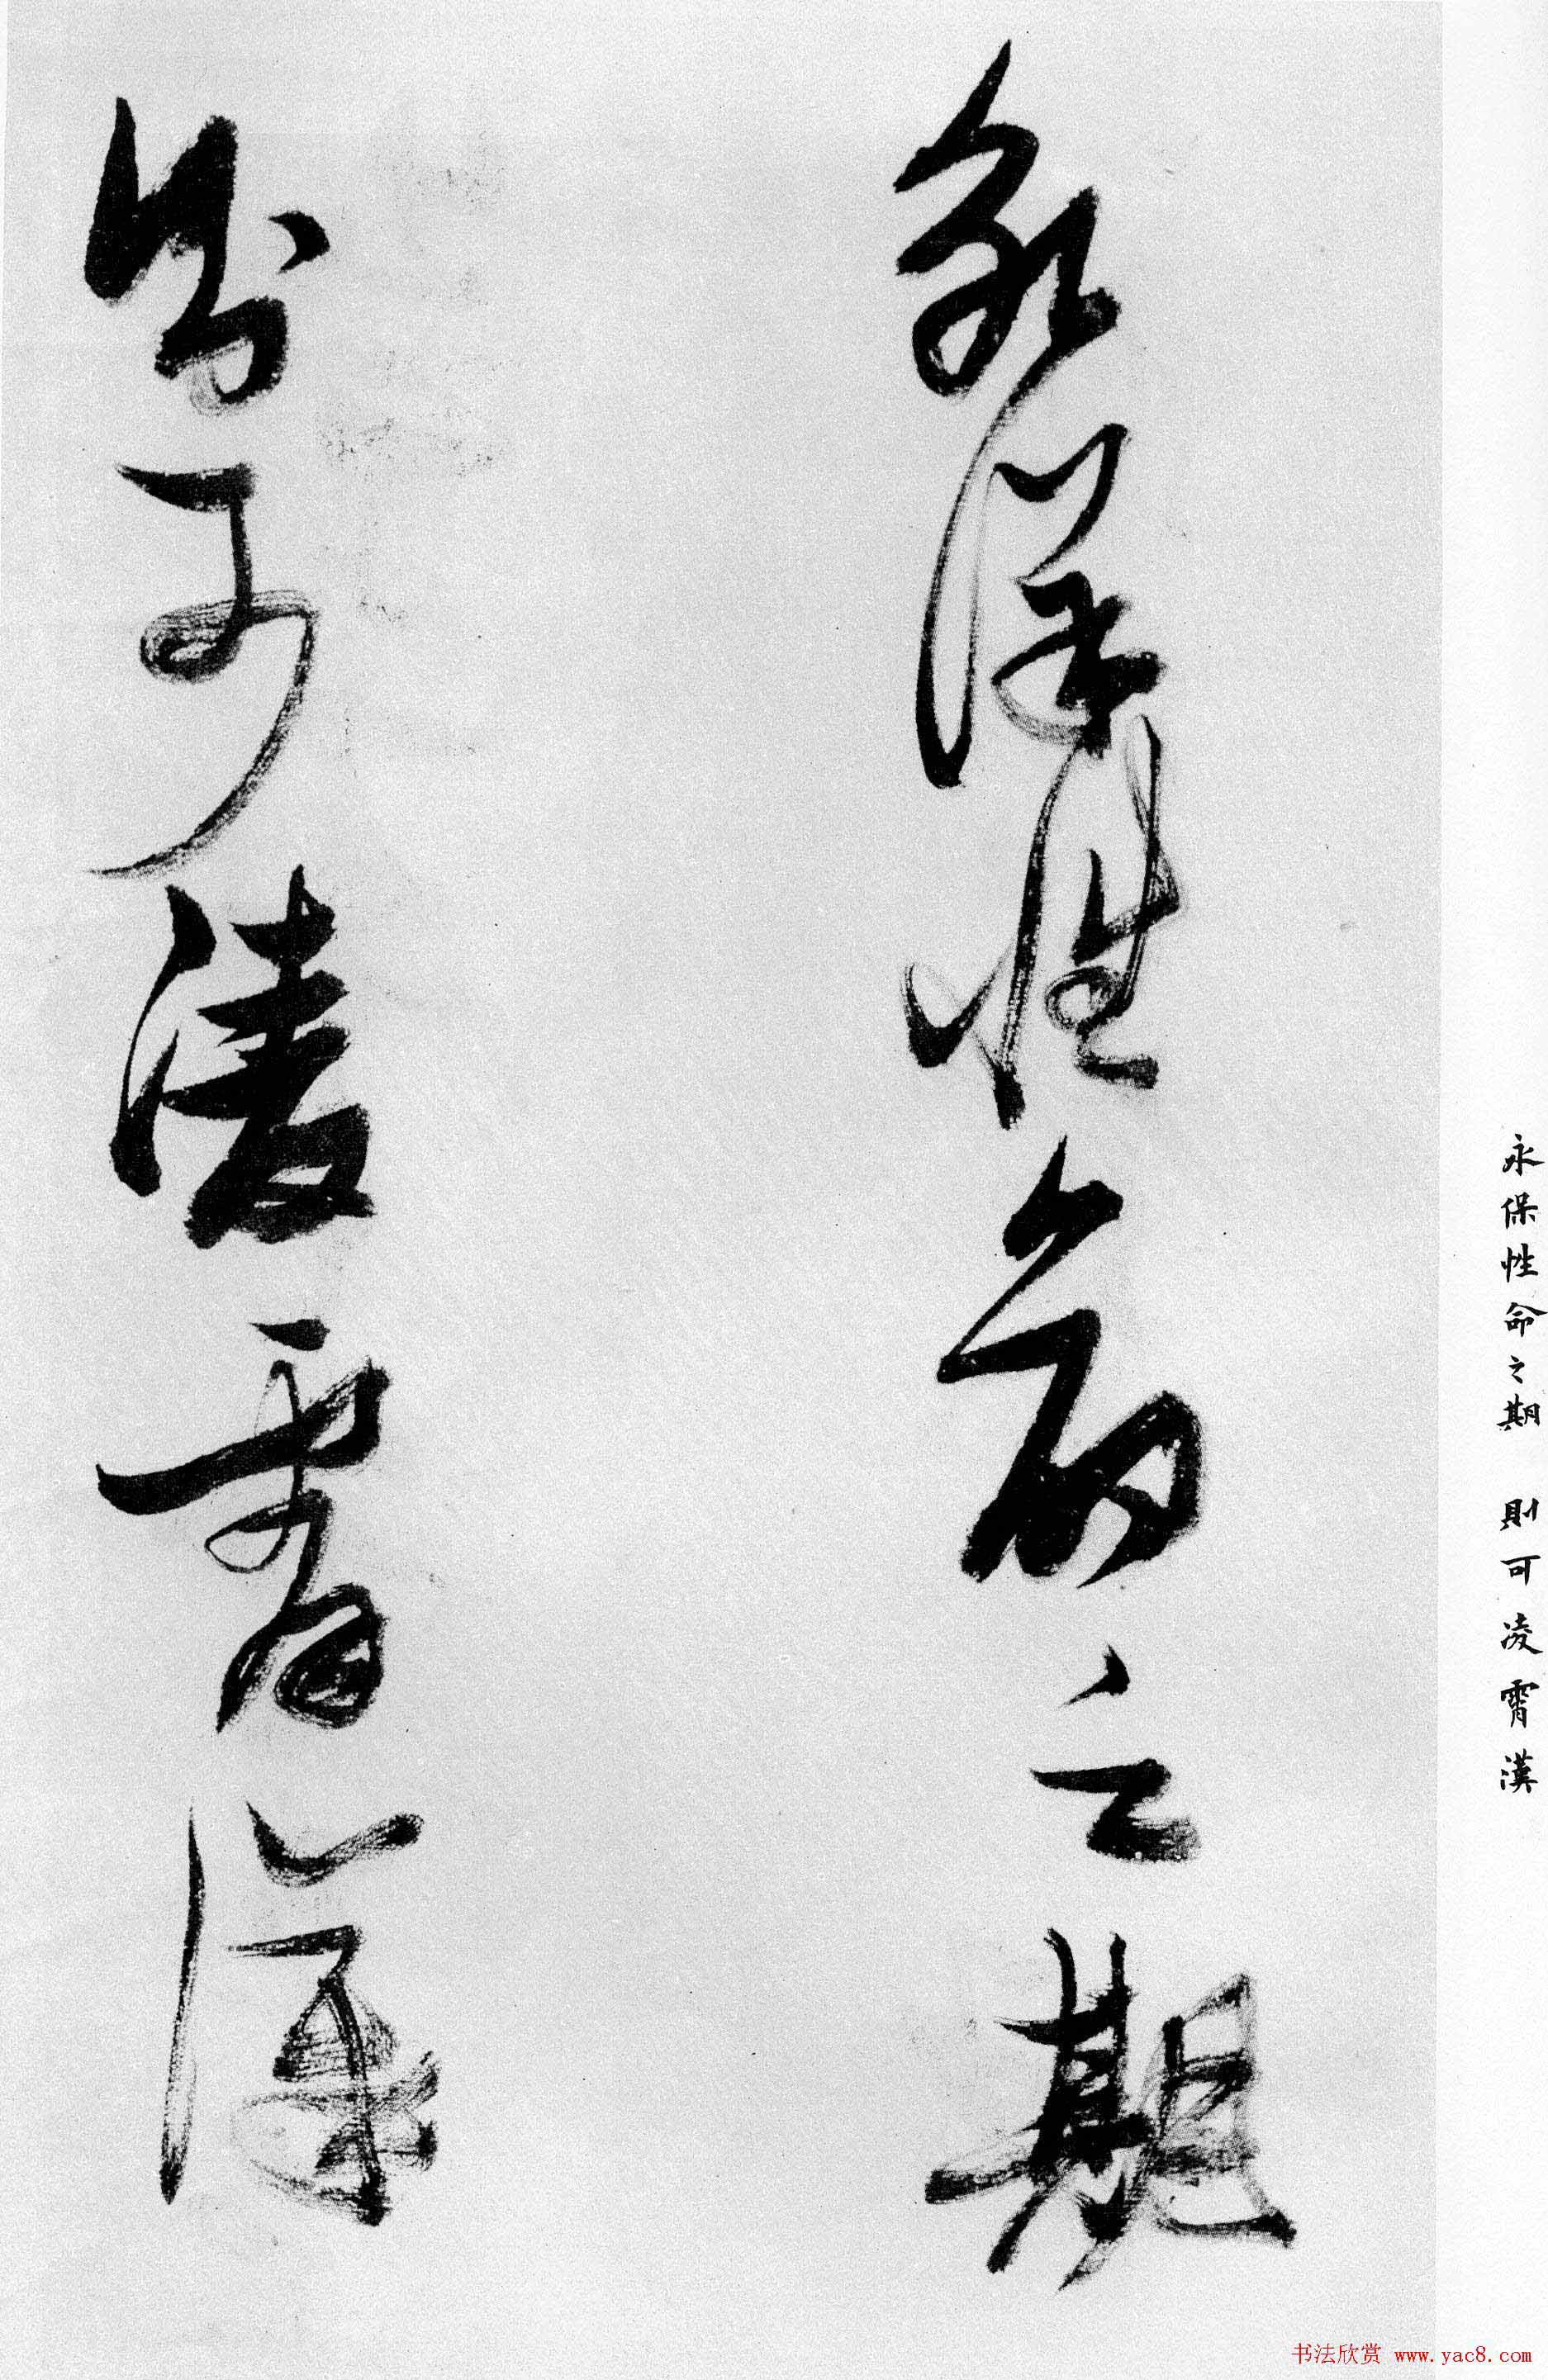 永保性命之期
則可凌霄漢
永保性命之期 則可凌霄漢
书法欣赏 www.yac8.com